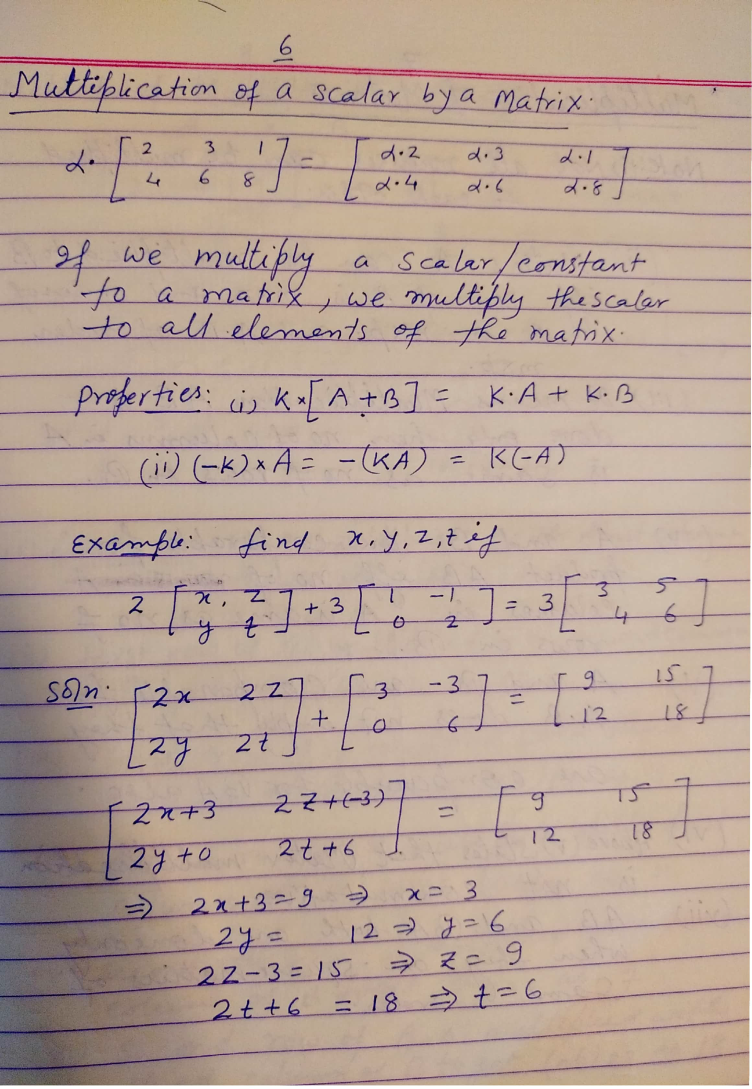 6
Multiplication of a scalar by a Matrix.
α· [2 3 1; 4 6 8] = [α·2 α·3 α·1; α·4 α·6 α·8]
If we multiply a scalar/constant
to a matrix, we multiply the scalar
to all elements of the matrix.
Properties: (i) K×[A+B] = K·A + K·B
(ii) (-K)×A = -(KA) = K(-A)
Example: find x, y, z, t if
2 [x z; y t] + 3 [1 -1; 0 2] = 3 [3 5; 4 6]
Soln. [2x 2z; 2y 2t] + [3 -3; 0 6] = [9 15; 12 18]
[2x+3 2z+(-3); 2y+0 2t+6] = [9 15; 12 18]
⇒ 2x+3=9 ⇒ x= 3
2y = 12 ⇒ y=6
2z-3=15 ⇒ z= 9
2t+6 = 18 ⇒ t=6